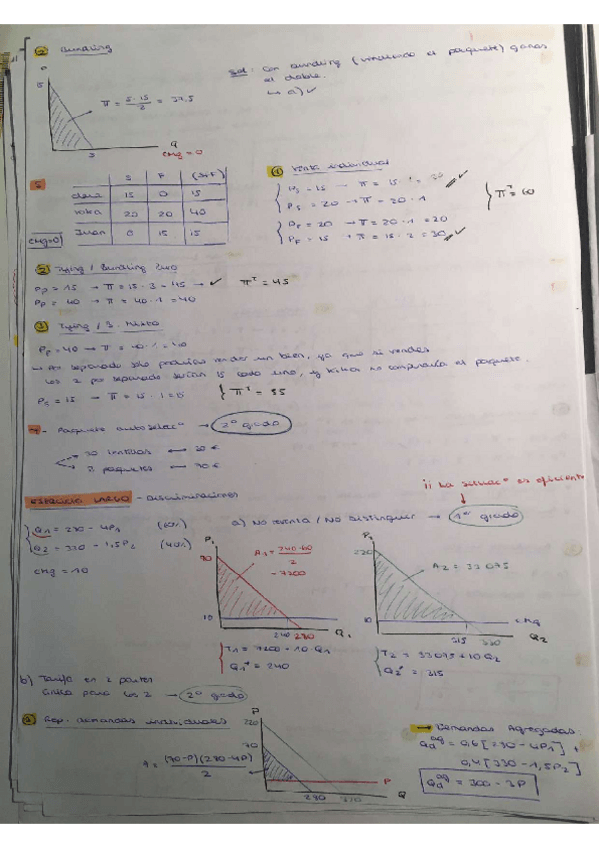 2 Bundling
Sol: Con bundling (vendiendo el paquete) ganas
el doble.
↳ a) ✓
π = 5·15/2 = 37.5
Q
CMg = 0
5
S F (S+F)
15 0 15
Kika 20 20 40
Juan 0 15 15
CMg=0
1 Venta individual
PS = 15 → π = 15·2 = 30 ✓
PS = 20 → π = 20·1
PF = 20 → π = 20·1 = 20
PF = 15 → π = 15·2 = 30 ✓
πT = 60
2 Tying / Bundling Puro
PP = 15 → π = 15·3 = 45 → ✓ πT = 45
PP = 40 → π = 40·1 = 40
3 Tying / B. Mixto
PP = 40 → π = 40·1 = 40
→ Por separado sólo podrías vender un bien, ya que si vendes
los 2 por separado serían 15 cada uno, y Kika no compraría el paquete.
PS = 15 → π = 15·1 = 15 { πT = 55
- Paquetes autoselecº → 2º grado
2 paquetes
- Discriminaciones
¡¡ La situacº es eficiente
Q1 = 280 - 4P1 (60%)
Q2 = 330 - 1,5P2 (40%)
CMg = 10
a) No reventa / No distinguir → 1er grado
P1
70
A1 = 240·60/2
= 7200
10
240 280 Q1
T1 = 7200 + 10·Q1
Q1* = 240
P2
220
A2 = 33075
10
CMg
315 330 Q2
T2 = 33075 + 10Q2
Q2* = 315
b) Tarifa en 2 partes
única para los 2 → 2º grado
Rep. demandas individuales
P
220
70
A = (70-P)(280-4P)/2
P
280 330 Q
→ Demandas Agregadas:
Qdag = 0,6[280 - 4P1] +
0,4[330 - 1,5P2]
Qdag = 300 - 3P